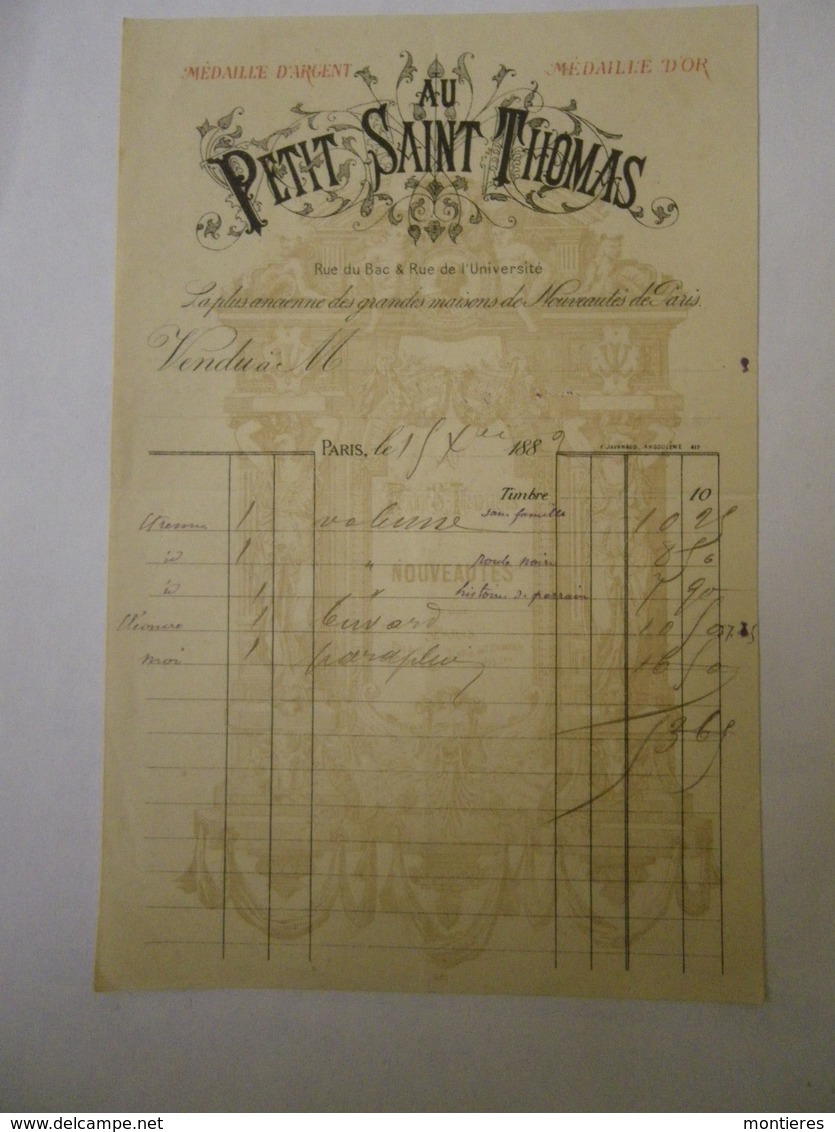 MÉDAILLE D'ARGENT
MÉDAILLE D'OR
AU
PETIT SAINT THOMAS
Rue du Bac & Rue de l'Université
La plus ancienne des grandes maisons de Nouveautés de Paris.
Vendu à M
F. JAVANAUD, ANGOULÊME
PARIS, le 15 Xbre 1889
Timbre 10
1 volume sans famille 10 25
id 1 " poule noire 8 50
NOUVEAUTÉS
id 1 " histoire de parrain 7 90
1 buvard 10 50
moi 1 parapluie 16 50
53 65
montieres